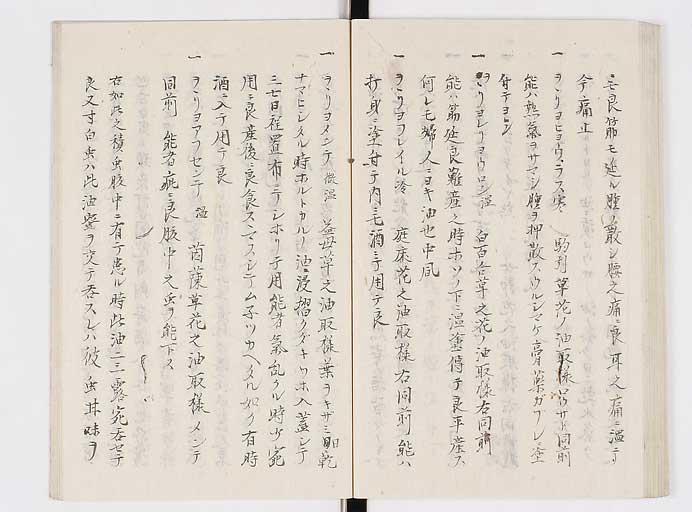 ニモ良筋モ延ル腫ノ散シ腰之痛ニ良耳之痛ニ温テ
今痛止
一 ヲヽリヨヒヨウラス寒 駒列草花ノ油取様 同前
能ハ熱氣ヲサマシ腫ヲ押散スウルシマケ膏藥ガフレニ塗
付テヨシ
一 ヲヽリヨレリヨウロン温 白百合草之花ノ油取様右同前
能ハ筋延良難産之時ホソノ下ニ温塗傅テ良平産ス
何レモ婦人ニヨキ油也中風
一 ヲヽリヨヲレイル冷 庭床花之油取様右同前能ハ
打身ニ塗付テ内ニモ酒ニテ用テ良
一 ヲヽリヨメンテ 微温 益母草之油取様葉ヲキサミ 乾
ナマヒシタル時ホルトカルノ油ニ浸摺クダキツホ入蓋シテ
三七日程置布ニテシホリテ用能者氣乱タル時少宛
用ニ良産後ニ良食スヽマスシテムネツカヘタル如ク有時
酒ニ入テ用テ良
一 ヲヽリヨアフセンテ 温 茵蔯草花之油取様メンテ
同前 能者疵ニ良腹中之虫ヲ能下ス
右如此之積虫腹中ニ有テ患ル時此油二三露宛呑セテ
良又寸白虫ハ此油蜜ヲ交テ呑スレハ彼虫其味ヲ